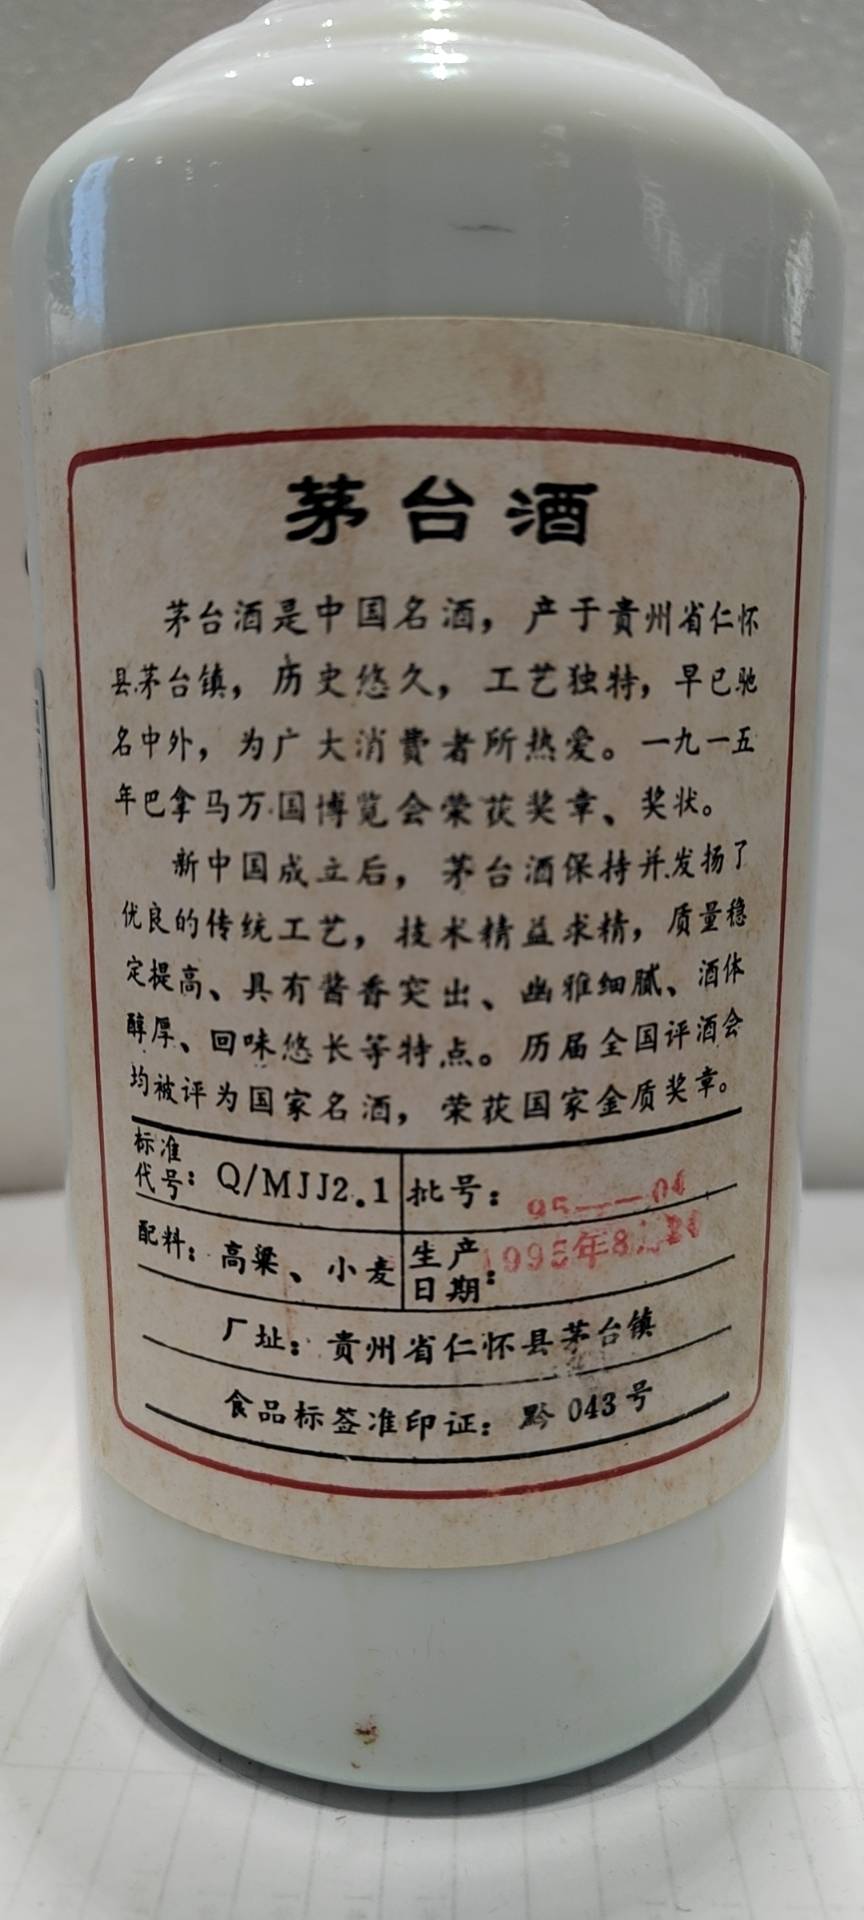 茅台酒
茅台酒是中国名酒，产于贵州省仁怀
县茅台镇，历史悠久，工艺独特，早已驰
名中外，为广大消费者所热爱。一九一五
年巴拿马万国博览会荣获奖章、奖状。
新中国成立后，茅台酒保持并发扬了
优良的传统工艺，技术精益求精，质量稳
定提高、具有酱香突出、幽雅细腻、酒体
醇厚、回味悠长等特点。历届全国评酒会
均被评为国家名酒，荣获国家金质奖章。
标准代号：Q/MJJ2.1 批号：95——04
配料：高粱、小麦 生产日期：1995年8
厂址：贵州省仁怀县茅台镇
食品标签准印证：黔 043 号